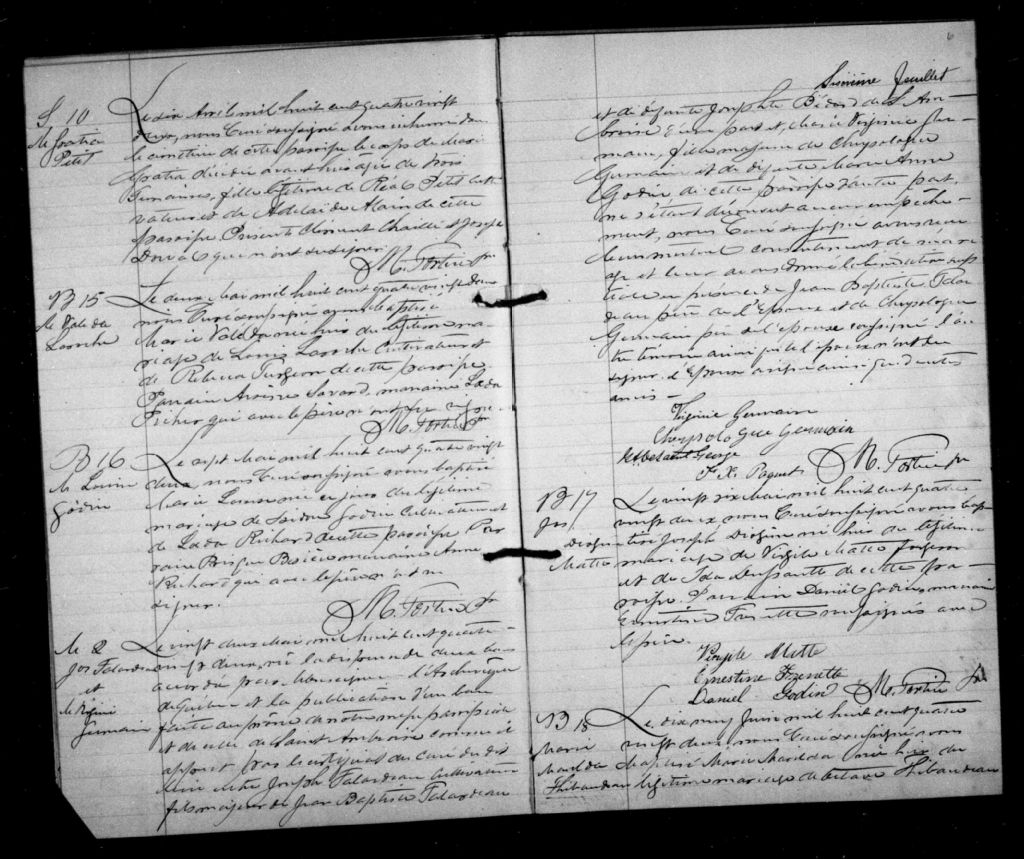 S. 10
M. Gratia
Petit
Le six Avril mil huit cent quatre vingt
deux, nous Curé soussigné avons inhumé dans
le cimetière de cette paroisse le corps de Marie
Gratia décédée avant hier âgée de trois
semaines, fille légitime de Réal Petit culti-
vateur et de Adelaïde Alain de cette
paroisse. Présents Clément Chaillé et Joseph
qui n'ont su signer.
M. Fortier Ptr
B 15
M. Valeda
Laroche
Le deux Mai mil huit cent quatre vingt deux
nous Curé soussigné avons baptisé
Marie Valeda née hier du légitime ma-
riage de Louis Laroche Cultivateur et
de Rebecca Turgeon de cette paroisse
Parrain Savard, marraine Léda
Picher qui avec le père n'ont su signer.
M. Fortier Ptr
B 16
M. Louise
Godin
Le sept Mai mil huit cent quatre vingt
deux, nous Curé soussigné avons baptisé
Marie Louise née ce jour du légitime
mariage de Isidore Godin Cultivateur et
de Léda Richard de cette paroisse Par-
rain marraine Anne
Richard qui avec le père n'ont su
signer.
M. Fortier Ptr
M. 2
Jos Falardeau
et
M. Virginie
Germain
Le vingt deux Mai mil huit cent quatre-
vingt deux, vu la dispense de deux bans
accordée par Monseigneur l'Archevêque
de Québec et la publication d'un ban
faite au prône de notre messe paroissiale
et de celle de Saint Ambroise comme il
appert par le certificat du curé du dit
lieu entre Joseph Falardeau cultivateur
fils majeur de Jean Baptiste Falardeau
6
Sixième feuillet
et de défunte Josephte Bédard de St Am-
broise d'une part et, Marie Virginie Ger-
main, fille majeure de Chrysologue
Germain et de défunte Marie Anne
Godin de cette paroisse d'autre part,
ne s'étant découvert aucun empêche-
ment, nous Curé soussigné avons reçu
leur mutuel consentement de maria-
ge et leur avons donné la bénédiction nup-
tiale en présence de Jean Baptiste Falar-
deau père de l'Epoux et de Chrysologue
Germain père de l'épouse soussigné. L'au-
tre témoin ainsi que l'époux n'ont su
signer. L'Epouse a signé ainsi que d'autres
amis —
Virginie Germain
Chrysologue Germain
George
F. X. Paquet
M. Fortier Ptr
B 17
Jos
Diogène
Matte
Le vingt six Mai mil huit cent quatre
vingt deux nous Curé soussigné avons bap-
tisé Joseph Diogène né hier du légitime
mariage de Virgile Matte forgeron
et de Ida Dussault de cette pa-
roisse. Parrain Daniel Godin, marraine
Ernestine Frenette soussignés avec
le père.
Virgile Matte
Ernestine Frenette
Daniel Godin
M. Fortier Ptr
B 18
Maria
Matilda
Thibaudeau
Le dix Juin mil huit cent quatre
vingt deux, nous Curé soussigné avons
baptisé Maria Matilda née hier du
légitime mariage de Octave Thibaudeau